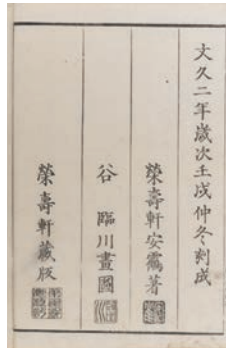 文久二年歳次壬戌仲冬刻成
榮壽軒安靄著
谷臨川畫圖
榮壽軒藏版